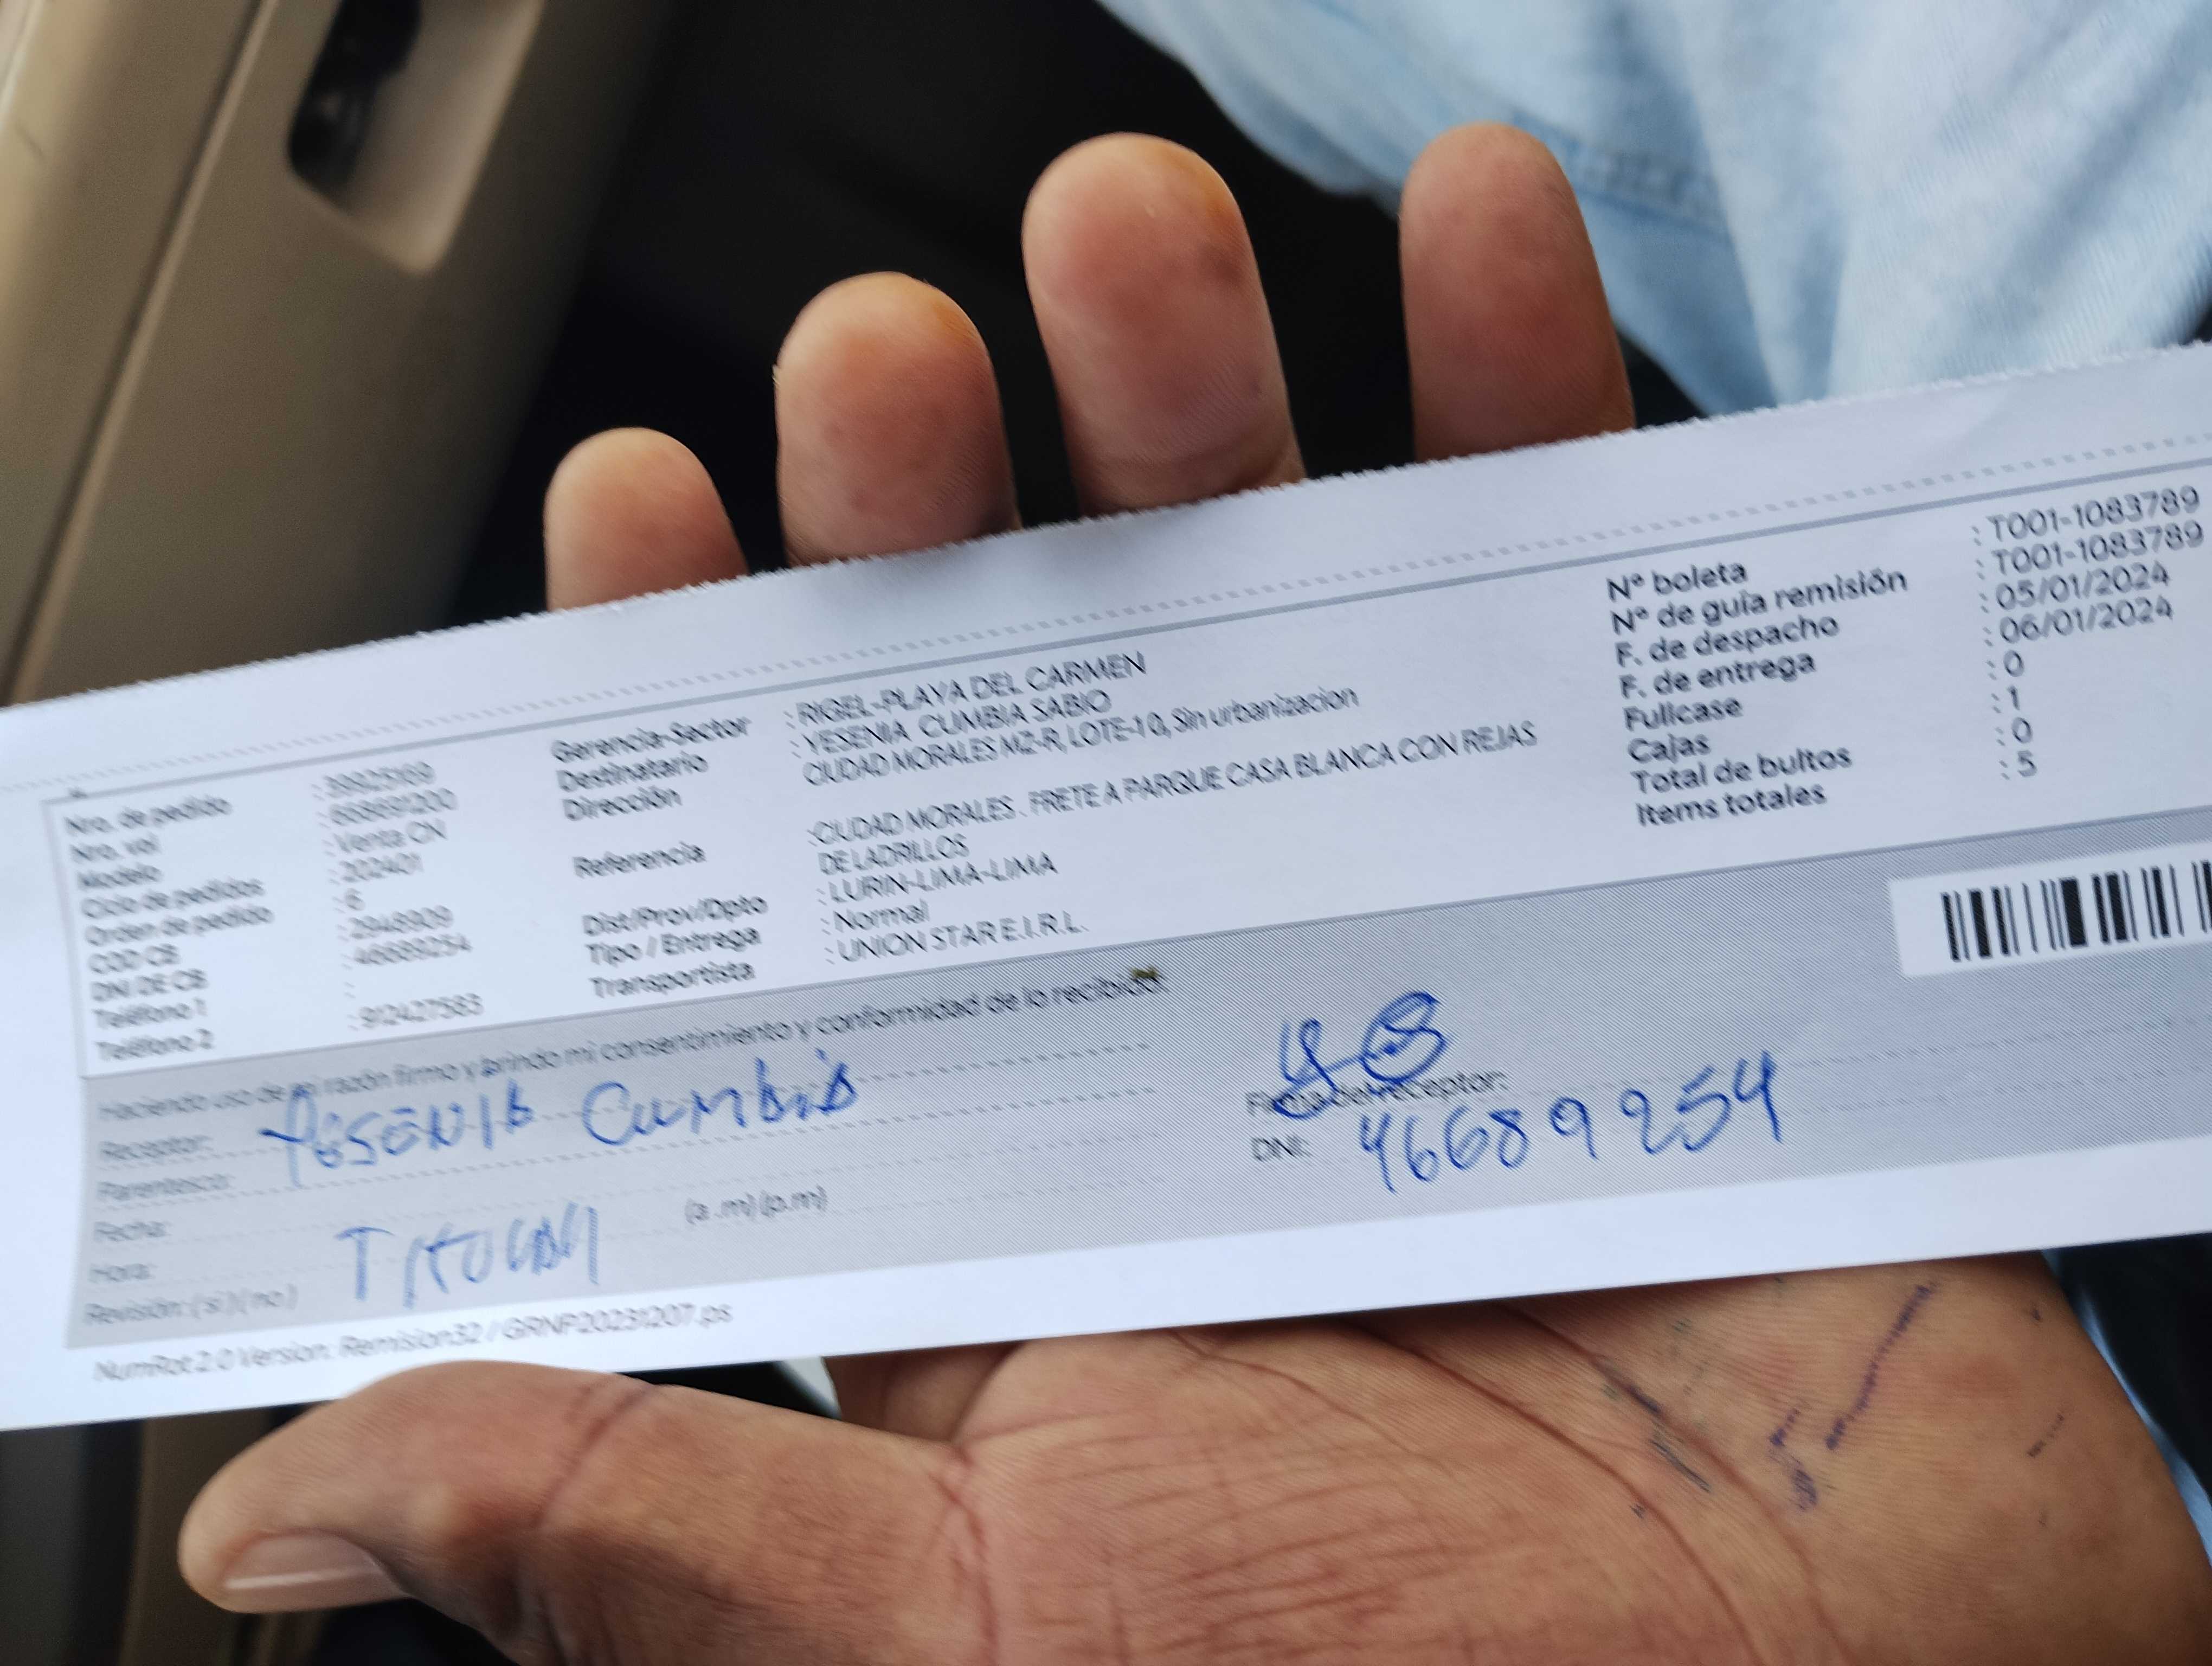 Nro. de pedido
Nro. vol : 608691200
Modelo : Venta CN
Ciclo de pedidos : 202401
Orden de pedido : 6
COD CB : 2948909
DNI DE CB : 46689254
Teléfono 1 :
Teléfono 2 : 912427583
Gerencia-Sector : RIGEL-PLAYA DEL CARMEN
Destinatario : YESENIA CUMBIA SABIO
Dirección CIUDAD MORALES MZ-R, LOTE-10, Sin urbanizacion
Referencia :CIUDAD MORALES . FRETE A PARQUE CASA BLANCA CON REJAS
DE LADRILLOS
Dist/Prov/Dpto : LURIN-LIMA-LIMA
Tipo / Entrega : Normal
Transportista : UNION STAR E.I.R.L.
Nº boleta : T001-1083789
Nº de guía remisión : T001-1083789
F. de despacho : 05/01/2024
F. de entrega : 06/01/2024
Fullcase : 0
Cajas : 1
Total de bultos : 0
Items totales : 5
Haciendo uso de mi razón firmo y brindo mi consentimiento y conformidad de lo recibido
Receptor: YESENIA CUMBIA
Parentesco:
Fecha:
Hora: (a .m) (p.m)
Revisión: ( si ) ( no ) TITULAR
Firma del receptor:
DNI: 46689254
NumRot 2.0 Version: Remision32 / GRNP20231207.ps